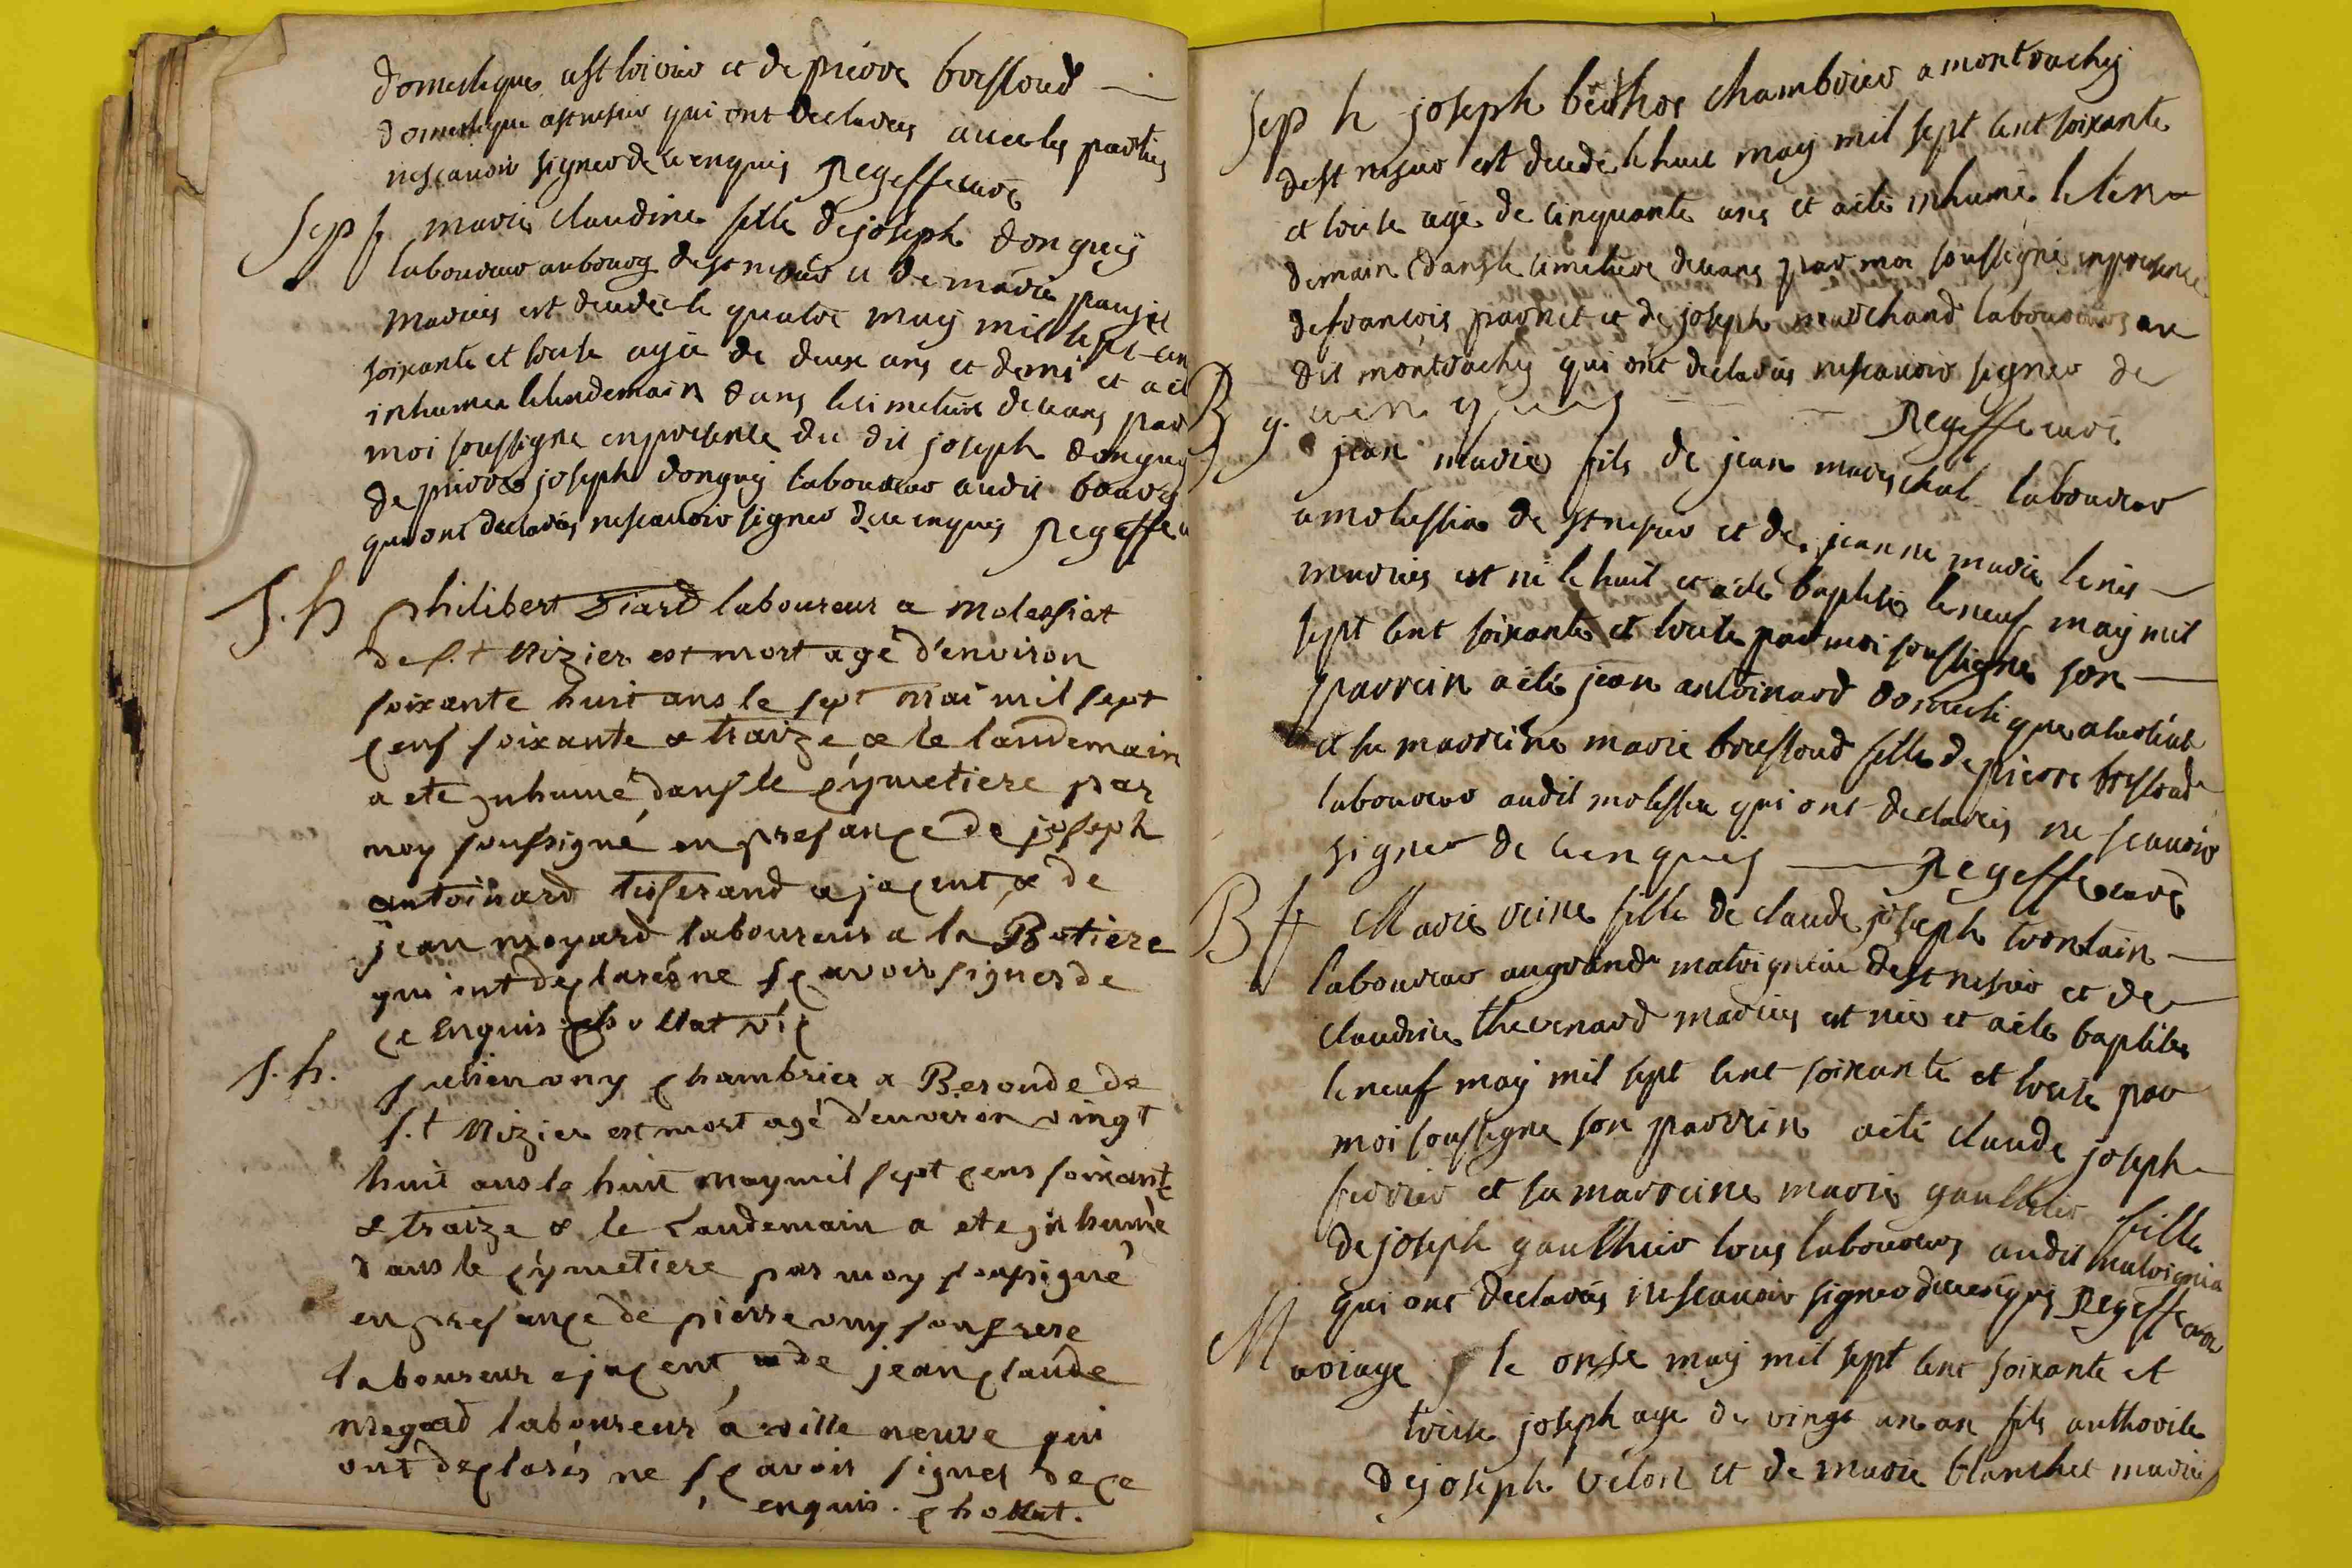 domestique a st trivier et de pierre bressoud
domestique a st nisier qui ont declarés avec les parties
ne scavoir signer de ce enquis Regeffe curé
Sep f marie claudine fille de joseph donguy
laboureur au bourg de st nisier et de marie
mariés est decedée le quatre may mil sept cen
soixante et treise agée de deux ans et demi et a eté
inhumée le lendemain dans le cimetiere de ceans par
moi soussigné en presence du dit joseph donguy
de pierre joseph donguy laboureur audit bourg
qui ont declarés ne scavoir signer de ce enquis Regeffe
S. h philibert Diard laboureur a molessiat
de s.t Nizier est mort agé d'environ
soixante huit ans le sept mai mil sept
cens soixante & traize & le landemain
a eté inhumé dans le cymetiere par
moy soussigné en presance de joseph
antoinard tisserand a jacent & de
jean moyard laboureur a la Batiere
qui ont declarés ne sçavoir signer de
ce enquis chollat vic
S. h. julien ony chambrier a Beronde de
s.t Nizier est mort agé d'environ vingt
huit ans le huit may mil sept cens soixante
& traize & le landemain a eté inhumé
dans le cymetiere par moy soussigné
en presance de pierre ony son frere
laboureur a jacent & de jean claude
megard laboureur a ville neuve qui
ont declarés ne sçavoir signer de ce
enquis. chollat.
Sep h joseph chambrier a montrachy
de st nisier est decedé le huit may mil sept cent soixante
et treise agé de cinquante ans et a eté inhumé le len
demain dans le cimetiere de ceans par moi soussigné en presence
de francois parnet et de joseph marchand laboureurs au
dit montrachy qui ont declarés ne scavoir signer de
ce enquis Regeffe curé
B g. jean marie fils de jean mareschal laboureur
a molessia de st nisier et de jeanne marie
mariés est né le huit et a eté baptisé le neuf may mil
sept cent soixante et treise par moi soussigné son
parrein a eté jean antoinard domestique
et sa marreine marie bressoud fille de pierre bressoud
laboureur audit molessia qui ont declarés ne scavoir
signer de ce enquis Regeffe curé
B f Marie reine fille de claude joseph trontain
laboureur au grand malrigniat de st nisier et de
claudine thevenard mariés est née et a eté baptisée
le neuf may mil sept cent soixante et treise par
moi soussigné son parrein a eté claude joseph
ferrier et sa marreine marie gauthier fille
de joseph gauthier tous laboureurs audit malrignia
qui ont declarés ne scavoir signer de ce enquis Regeffe curé
Mariage le onse may mil sept cent soixante et
treise joseph agé de vingt un an fils authorisé
de joseph velon et de marie blanchet mariés